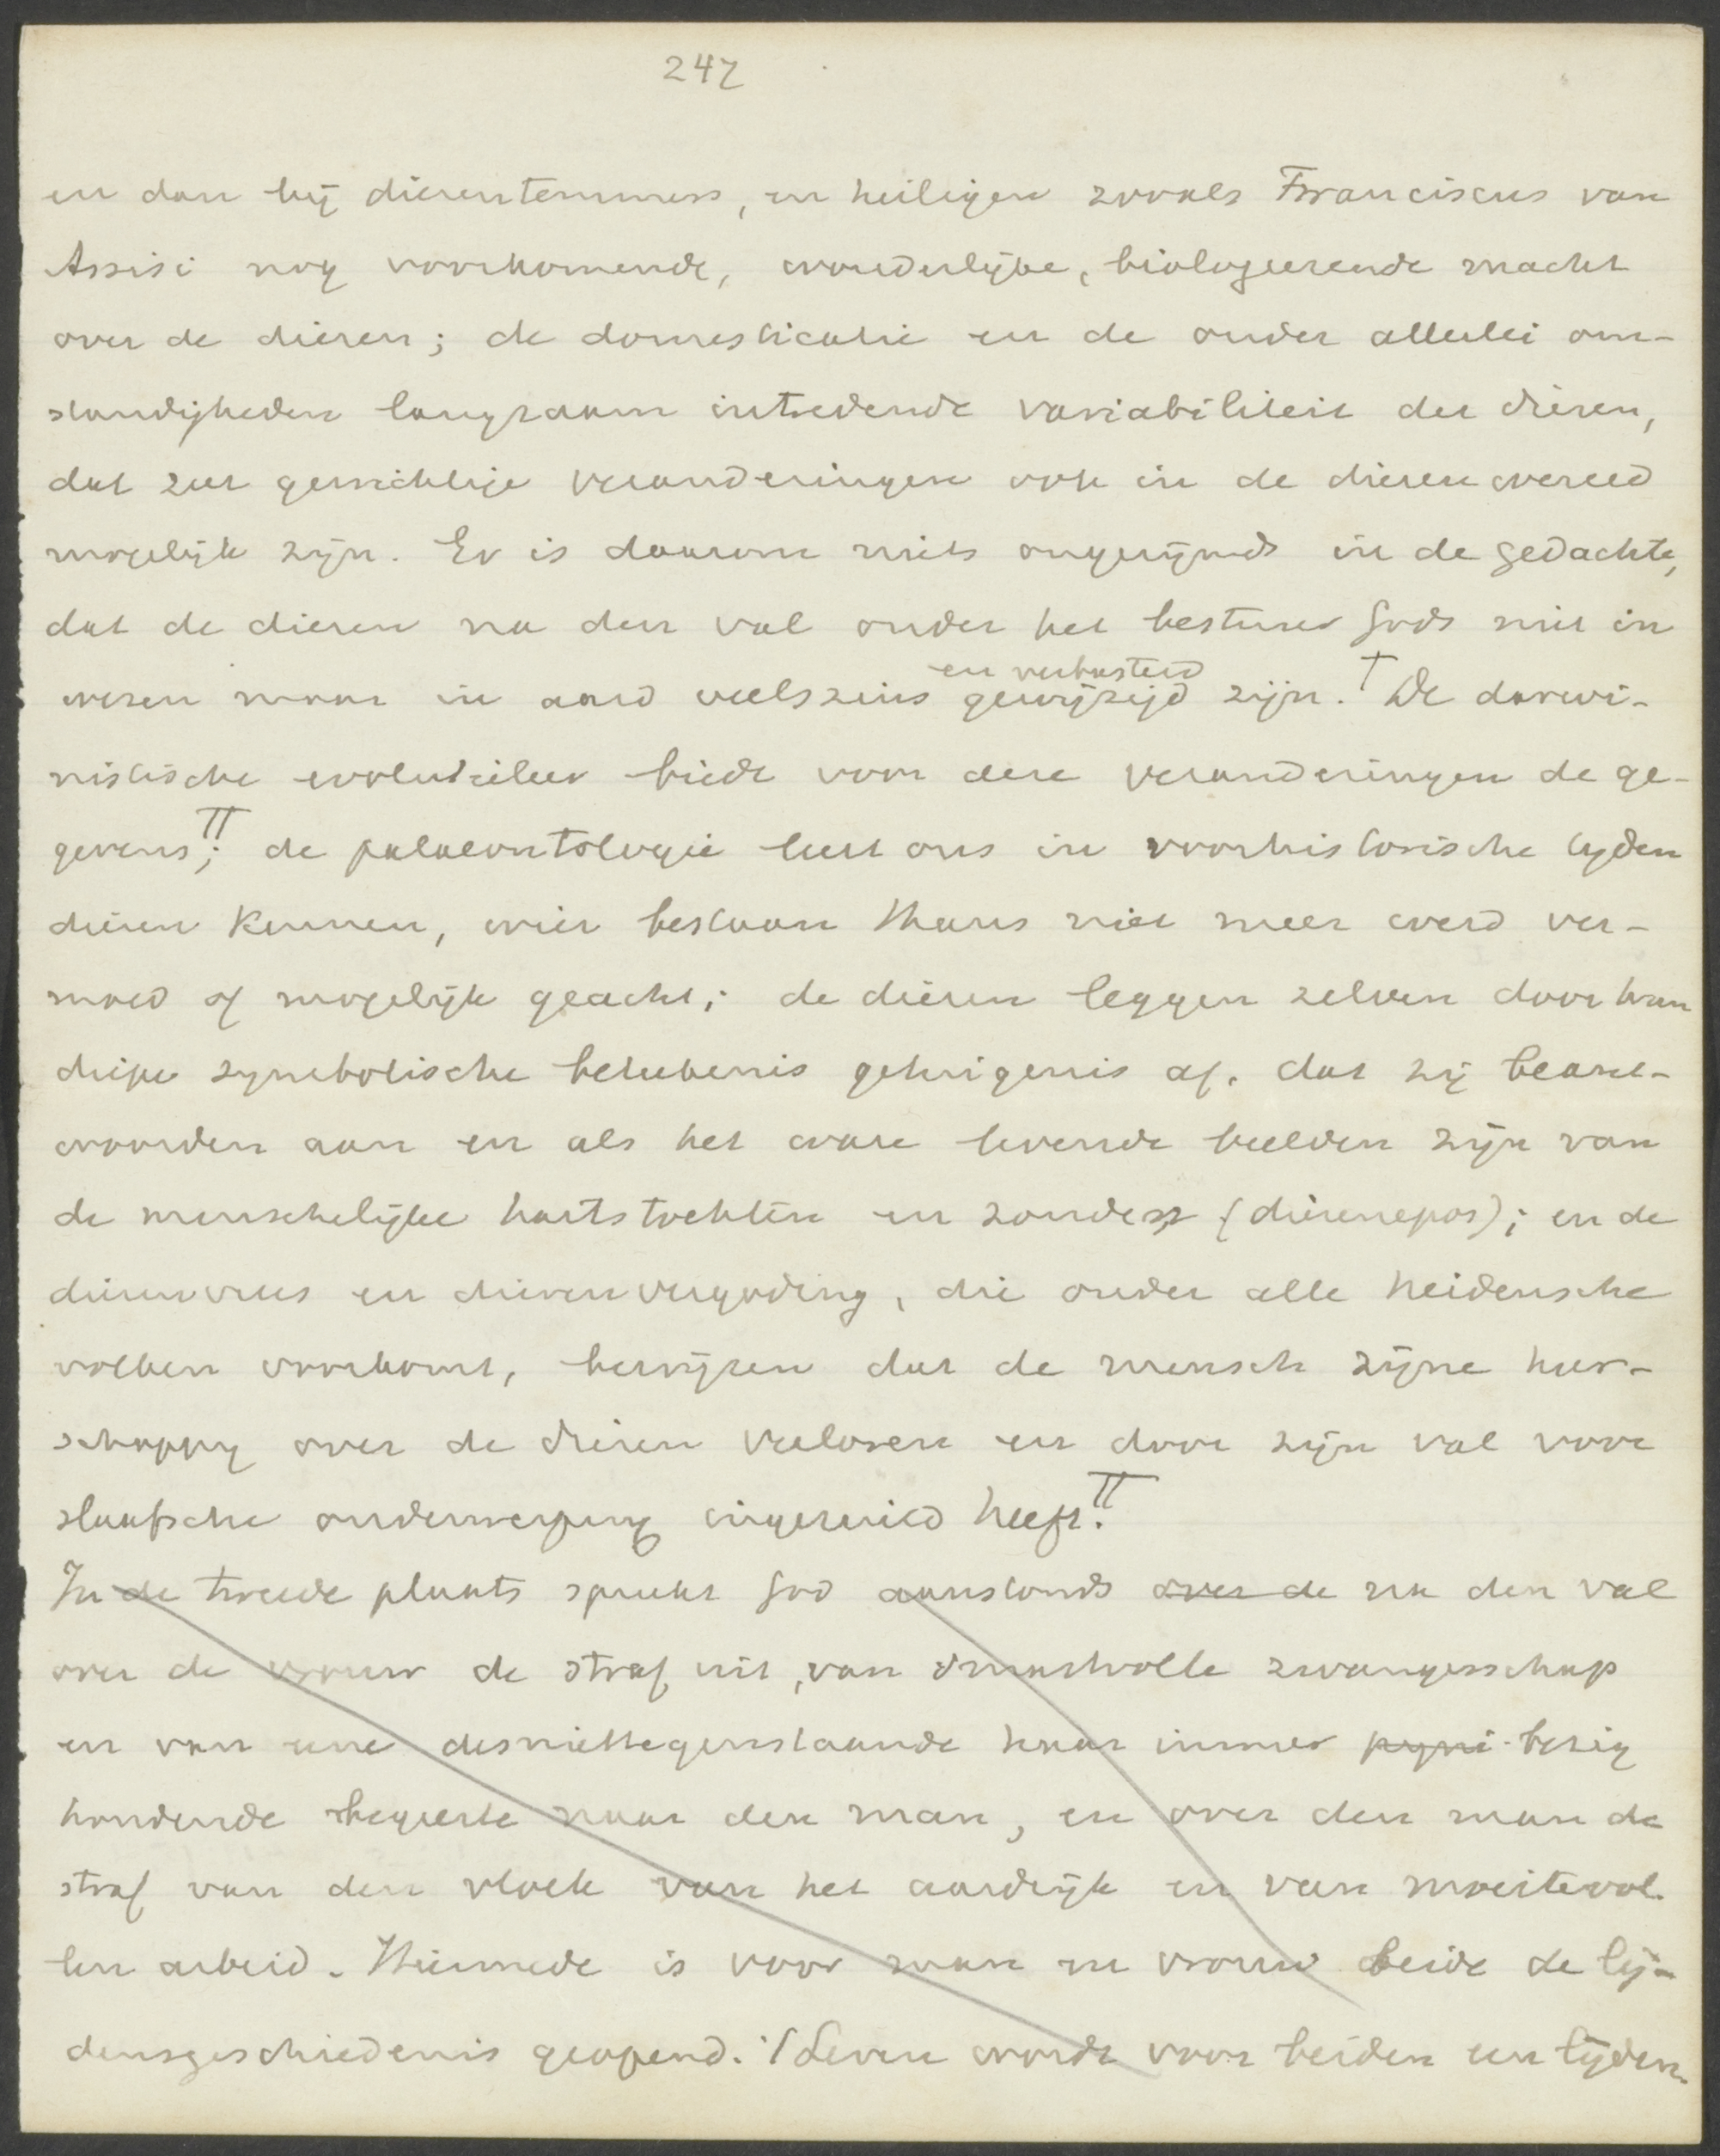 247
en dan bij dierentemmers, en heiligen zooals Franciscus van
Assisi nog voorkomende, wonderlijke, biologeerende macht
over de dieren; de domesticatie en de onder allerlei om-
standigheden langzaam intredende variabiliteit der dieren,
dat zeer gewichtige veranderingen ook in de dierenwereld
mogelijk zijn. Er is daarom niets ongerijmds in de gedachte,
dat de dieren na den val onder het bestuur Gods niet in
en verbasterd
wezen maar in aard veelszins gewijzigd zijn. † De darwi-
nistische evolutieleer biedt voor deze veranderingen de ge-
gevens ††; de palaeontologie leert ons in voorhistorische tijden
dieren kennen, wier bestaan thans niet meer werd ver-
moed of mogelijk geacht; de dieren leggen zelven door hun
diepe symbolische beteekenis getuigenis af, dat zij beant-
woorden aan en als het ware levende beelden zijn van
de menschelijke hartstochten en zonden (dierenepos); en de
dierenvrees en dierenvergoding, die onder alle heidensche
volken voorkomt, bewijzen dat de mensch zijne heer-
schappij over de dieren verloren en door zijn val voor
slaafsche onderwerping ingeruild heeft. ††
In de tweede plaats spreekt God aanstonds over de na den val
over de vrouw de straf uit, van smartvolle zwangerschap
en van eene desniettegenstaande haar immer pijni- bezig
houdende begeerte naar den man, en over den man de
straf van den vloek van het aardrijk en van moeitevol-
len arbeid. Hiermede is voor man en vrouw beide de lij-
densgeschiedenis geopend. 't Leven wordt voor beiden een lijden.